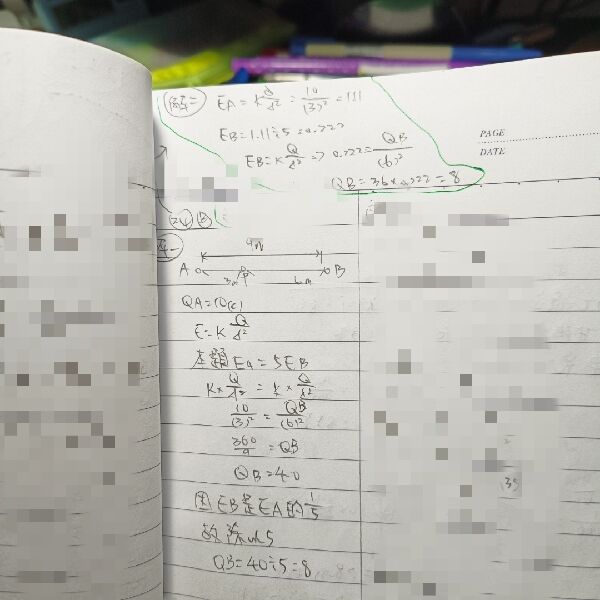 解二
EA = K Q/d² = 10/(3)² = 1.11
EB = 1.11÷5 = 0.222
EB = K Q/d² => 0.222 = QB/(6)²
QB = 36×0.222 = 8
PAGE
DATE
9m
A B
3m P 6m
QA = 10(c)
E = K Q/d²
本題 EA = 5EB
K× Q/d² = K× Q/d²
10/(3)² = QB/(6)²
360/9 = QB
QB = 40
因EB是EA的1/5
故除以5
QB = 40÷5 = 8